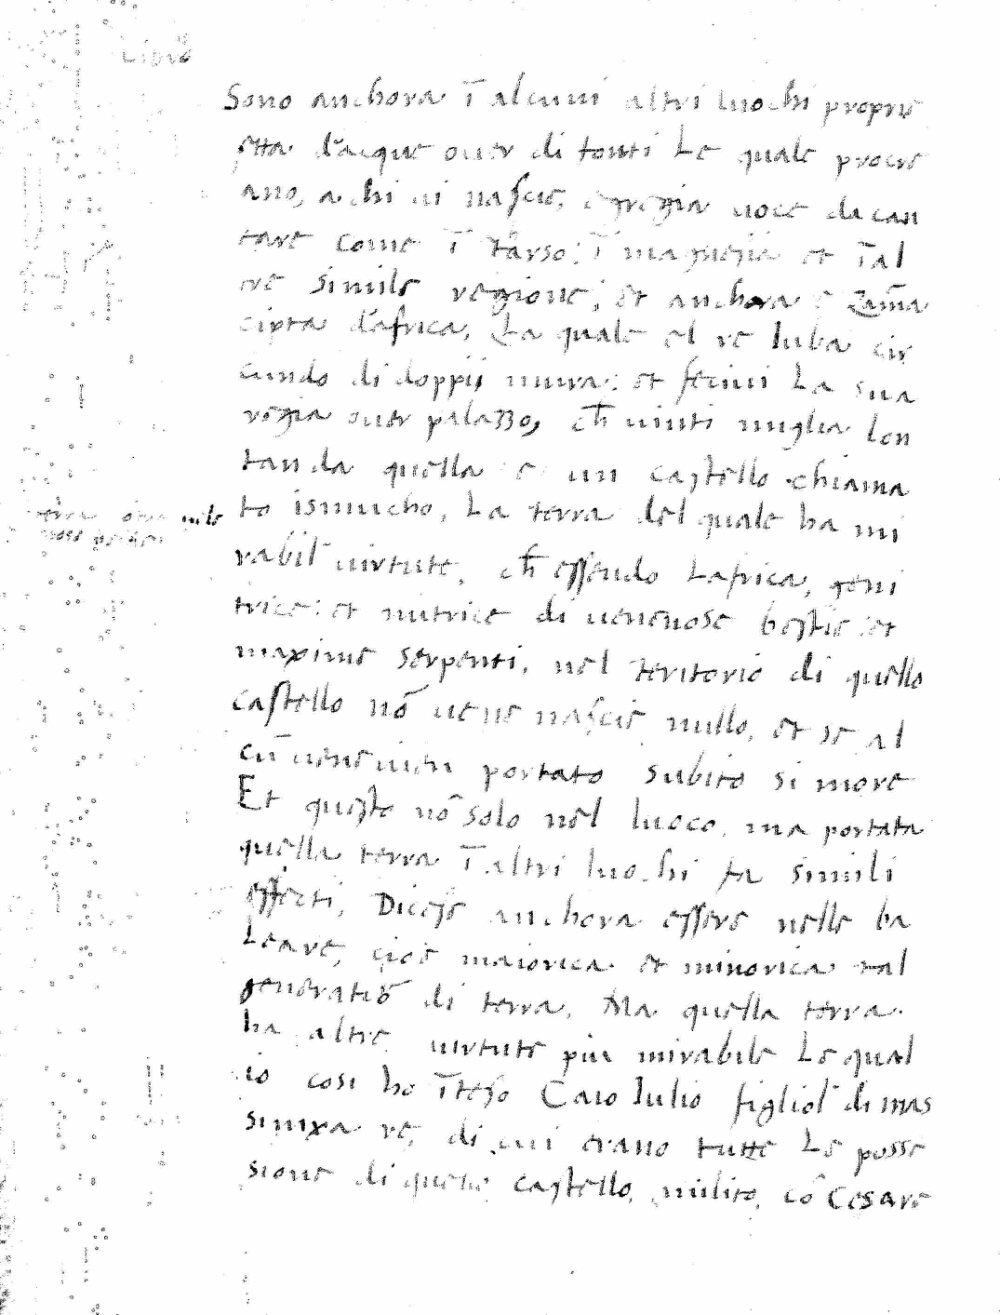 Libro
Sono anchora ī alcuni altri luochi proprie
etta d'acque over di fonti Le quale procre
ano, a chi vi nascie, egregia voce da can
tare come ī Tarso: ī magnesia et ī al
tre simile regione; et anchora è Zama
cipta d'africa, La quale el re Iuba cir
cundo di doppij mura: et fecivi La sua
regia over palazzo, ch̄ vinti miglia lon
tan da quella e un castello chiama
to ismucho, La terra del quale ha mi
rabil virtute, ch̄ essendo Lafrica, geni
trice: et nutrice di venenose bestie et
maxime serpenti, nel teritorio di quello
castello nō vene nascie nullo, et se al
cū vene vien portato subito si more
Et questo nō solo nel luoco, ma portata
quella terra ī altri luochi fa simili
effecti, Dicese anchora essere nelle ba
Leare, cioè maiorica et minorica tal
generatiō di terra, Ma quella terra
ha altre virtute piu mirabile Le qual
io cosi ho īteso Caio Iulio figliol di mas
sinixa re, di cui erano tutte Le posse
sione di quello castello, milito, cō Cesare